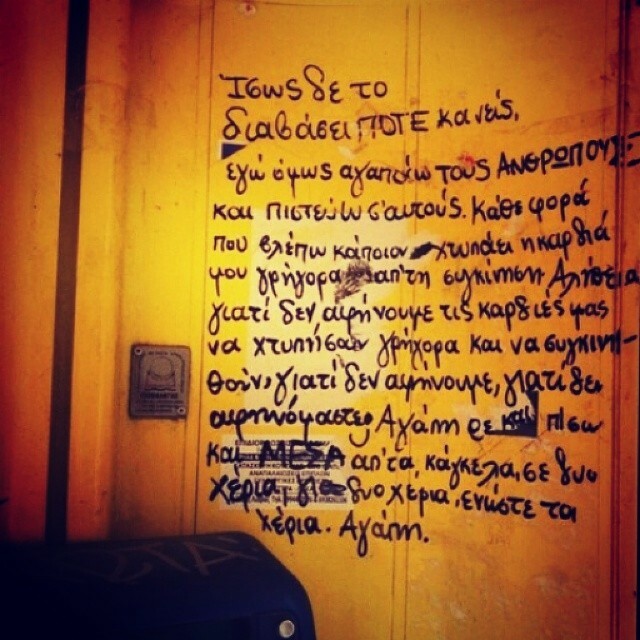 Ίσως δε το
διαβάσει ΠΟΤΕ κανείς,
εγώ όμως αγαπάω τους ΑΝΘΡΩΠΟΥΣ
και πιστεύω σ'αυτούς. Κάθε φορά
που βλέπω κάποιον χτυπάει η καρδιά
μου γρήγορα απ'τη συγκίνηση. Αλήθεια
γιατί δεν αφήνουμε τις καρδιές μας
να χτυπήσουν γρήγορα και να συγκινη-
θούν, γιατί δεν αφήνουμε, γιατί δεν
αφηνόμαστε; Αγάπη ρε και πίσω
και ΜΕΣΑ απ'τα κάγκελα, σε δυο
χέρια, για δυο χέρια. ενώστε τα
χέρια. Αγάπη.
ΣΤΑ